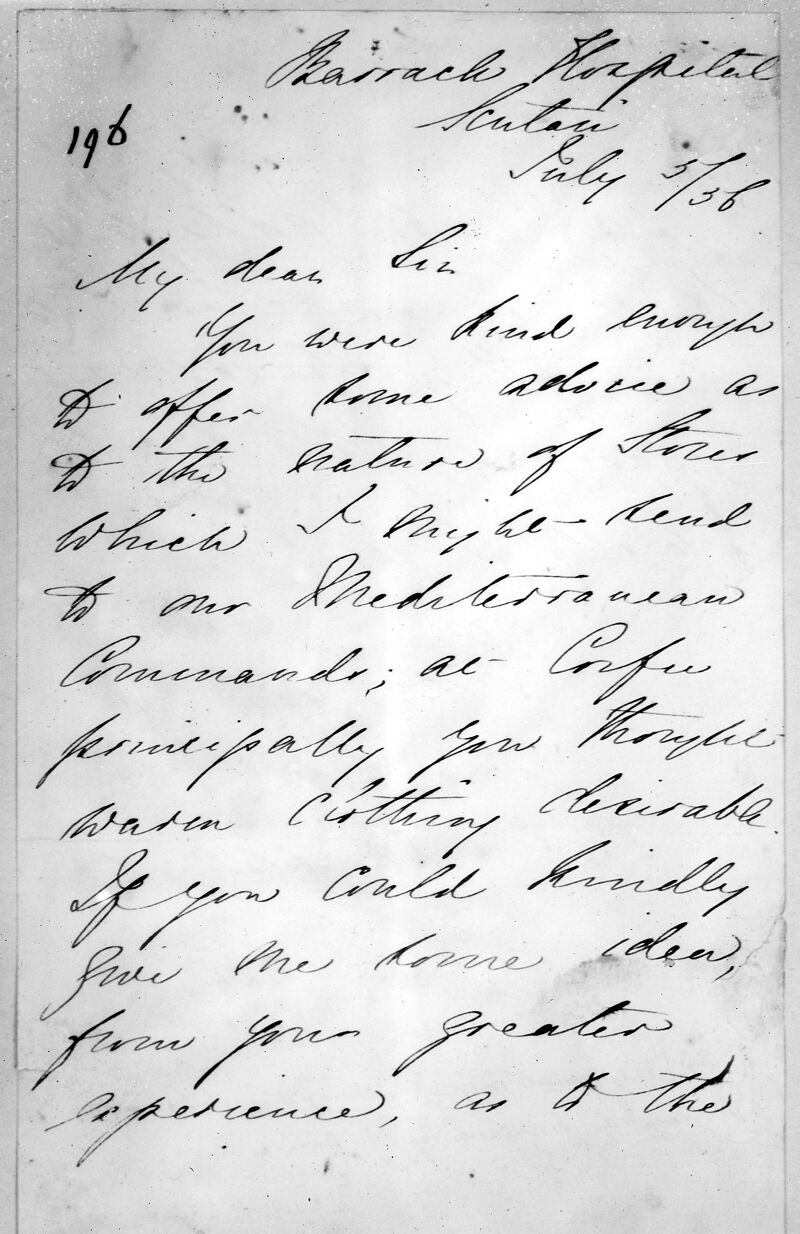 Barrack Hospital
Scutari
196
July 5/56
My dear Sir
You were kind enough
to offer some advice as
to the nature of Stores
which I might send
to our Mediterranean
Commands; at Corfu
principally you thought
warm clothing desirable.
If you could kindly
give me some idea,
from your greater
experience, as to the